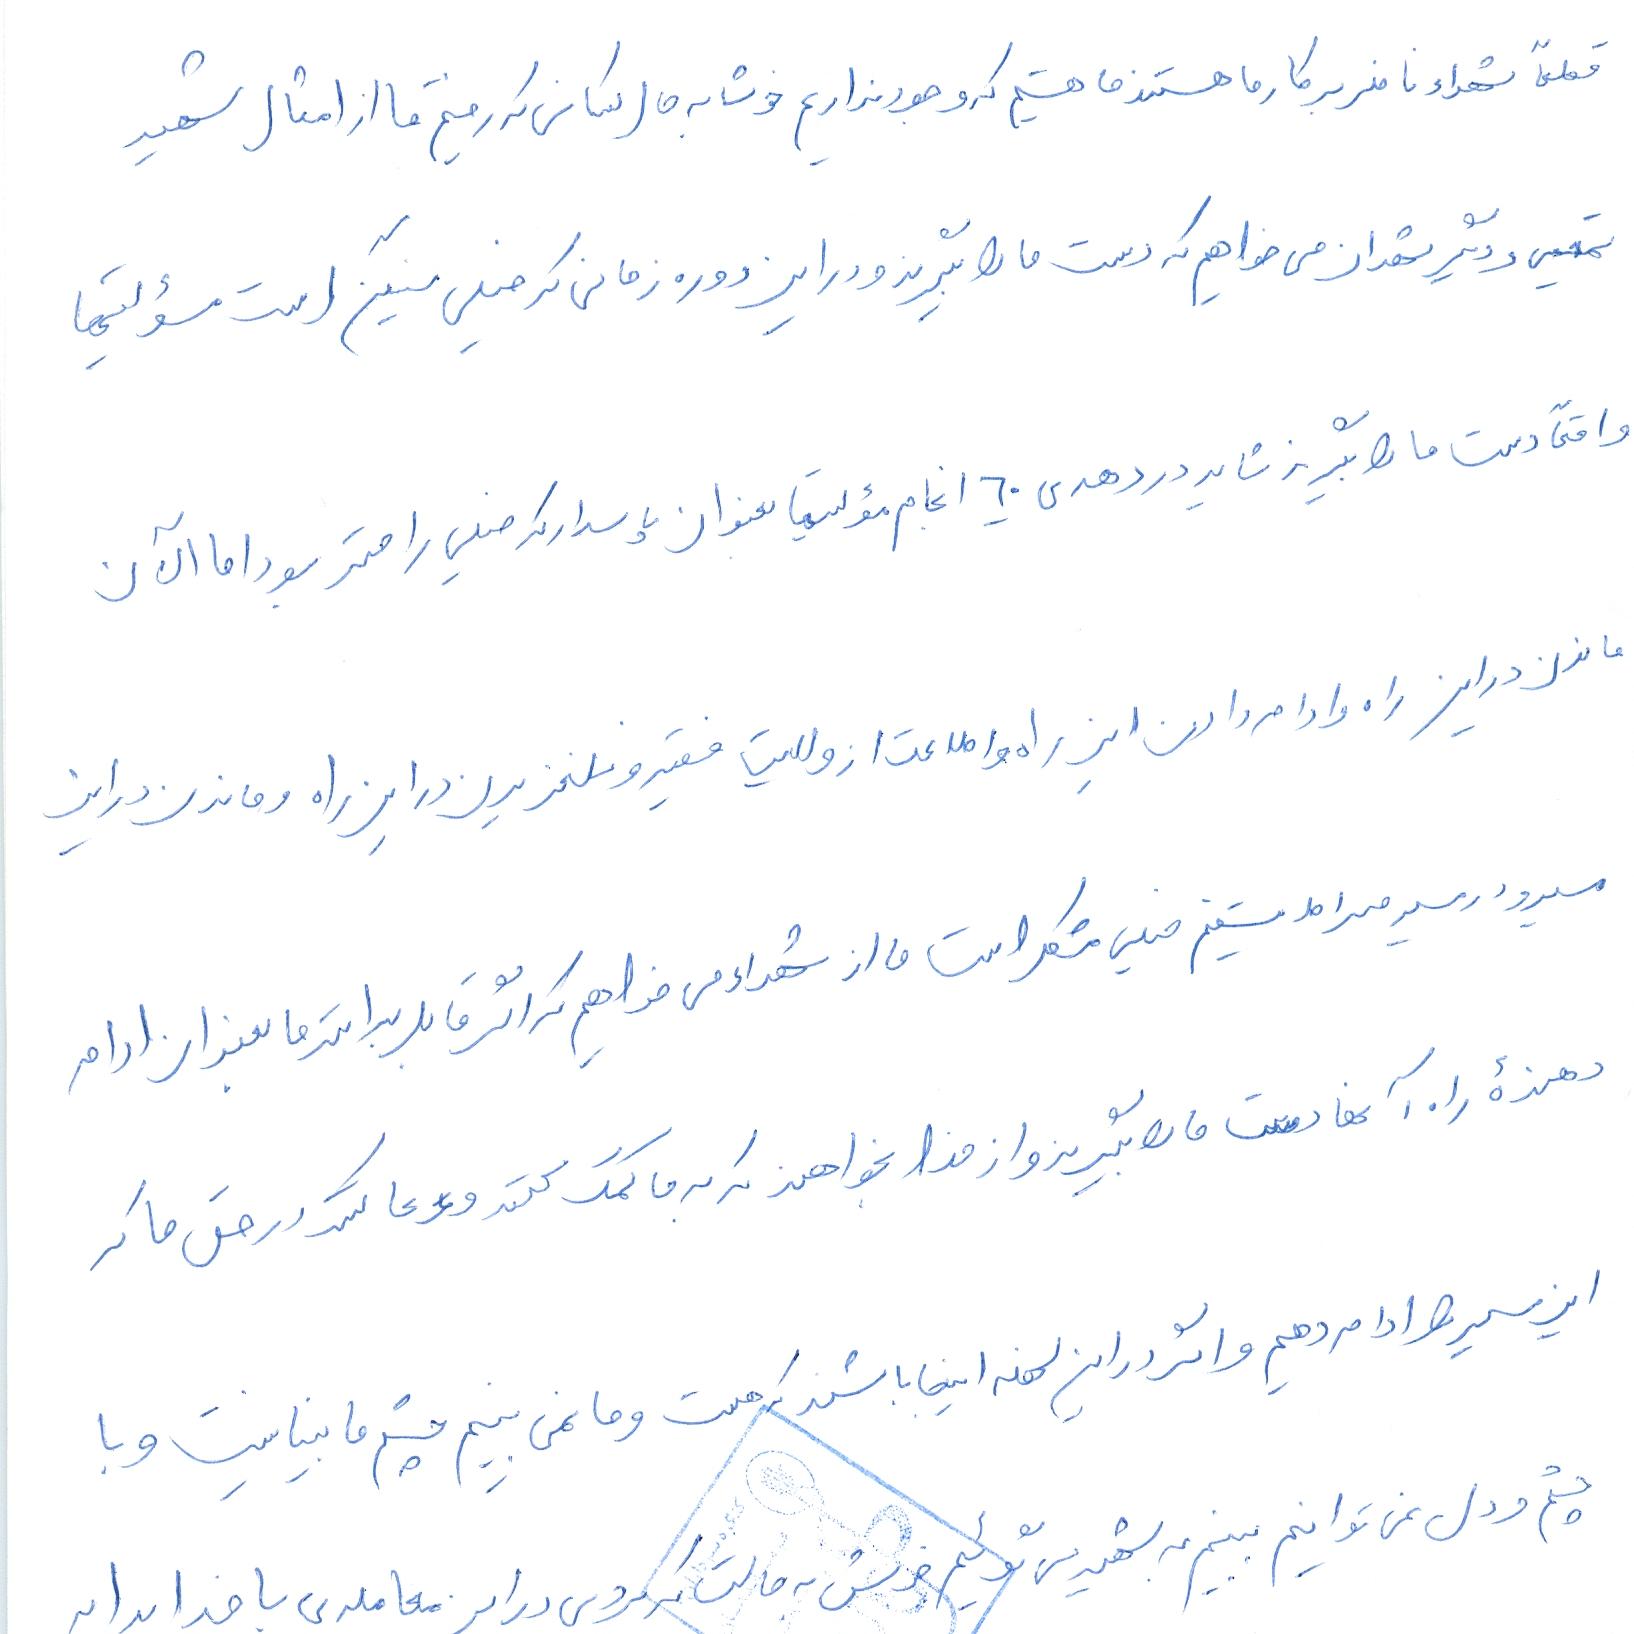 قطعاً شهداء ناظر بر کار ما هستند ما هستیم که وجود نداریم خوشا به حال کسانی که رفتند ما از امثال شهید
و دیگر شهدان می خواهیم که دست ما را بگیرند و در این دوره زمانی که خیلی سنگین است مسؤلیتها
واقعاً دست ما را بگیرند شاید در دهه ی ٦٠ انجام مؤلیتها بعنوان پاسدار که خیلی راحتتر بود اما الآن
ماندن در این راه و ادامه دادن این راه و اطاعت از ولایت فقیه و نلغزیدن در این راه و ماندن در این
مسیر و در مسیر صراط مستقیم خیلی مشکل است ما از شهداء می خواهیم که اگر قابل بدانند ما بعنوان ادامه
دهندهٔ راه آنها دست ما را بگیرند و از خدا بخواهند که به ما کمک کنند و دعا کنند در حق ما که
این مسیر را ادامه دهیم و اگر در این لحظه اینجا باشند که هست و ما نمی بینیم چشم ما بینا نیست و با
چشم و دل نمی توانیم ببینیم به شهید می گوئیم خوش به حالت که مردی در این معامله ی با خدا